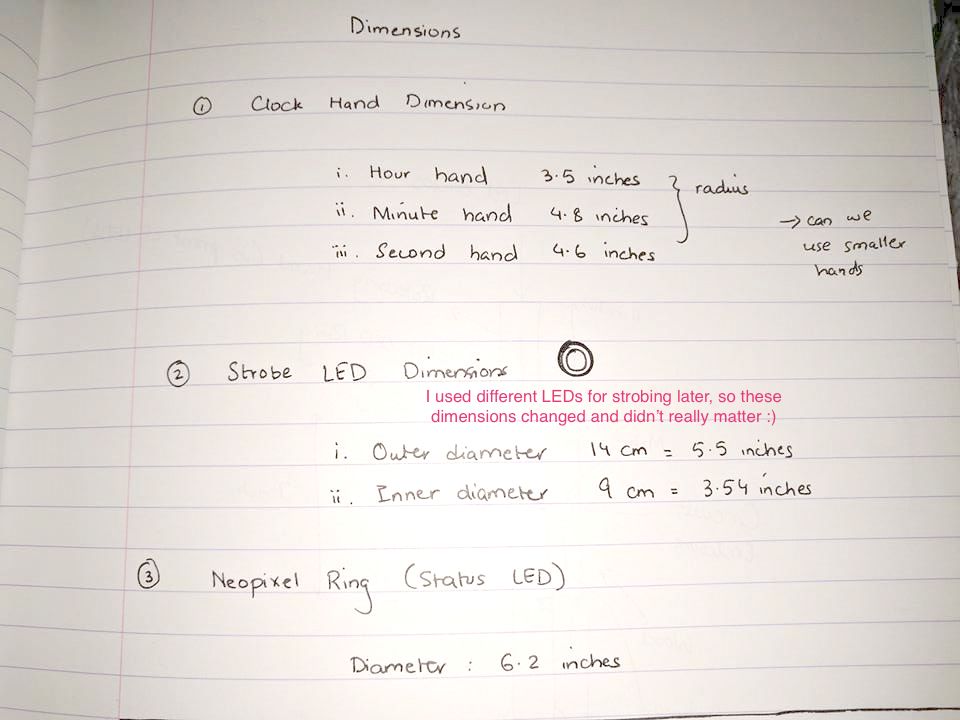 Dimensions
① Clock Hand Dimension
i. Hour hand 3.5 inches
ii. Minute hand 4.8 inches
iii. Second hand 4.6 inches
} radius
→ can we
use smaller
hands
② Strobe LED Dimensions
I used different LEDs for strobing later, so these
dimensions changed and didn't really matter :)
i. Outer diameter 14 cm = 5.5 inches
ii. Inner diameter 9 cm = 3.54 inches
③ Neopixel Ring (Status LED)
Diameter : 6.2 inches